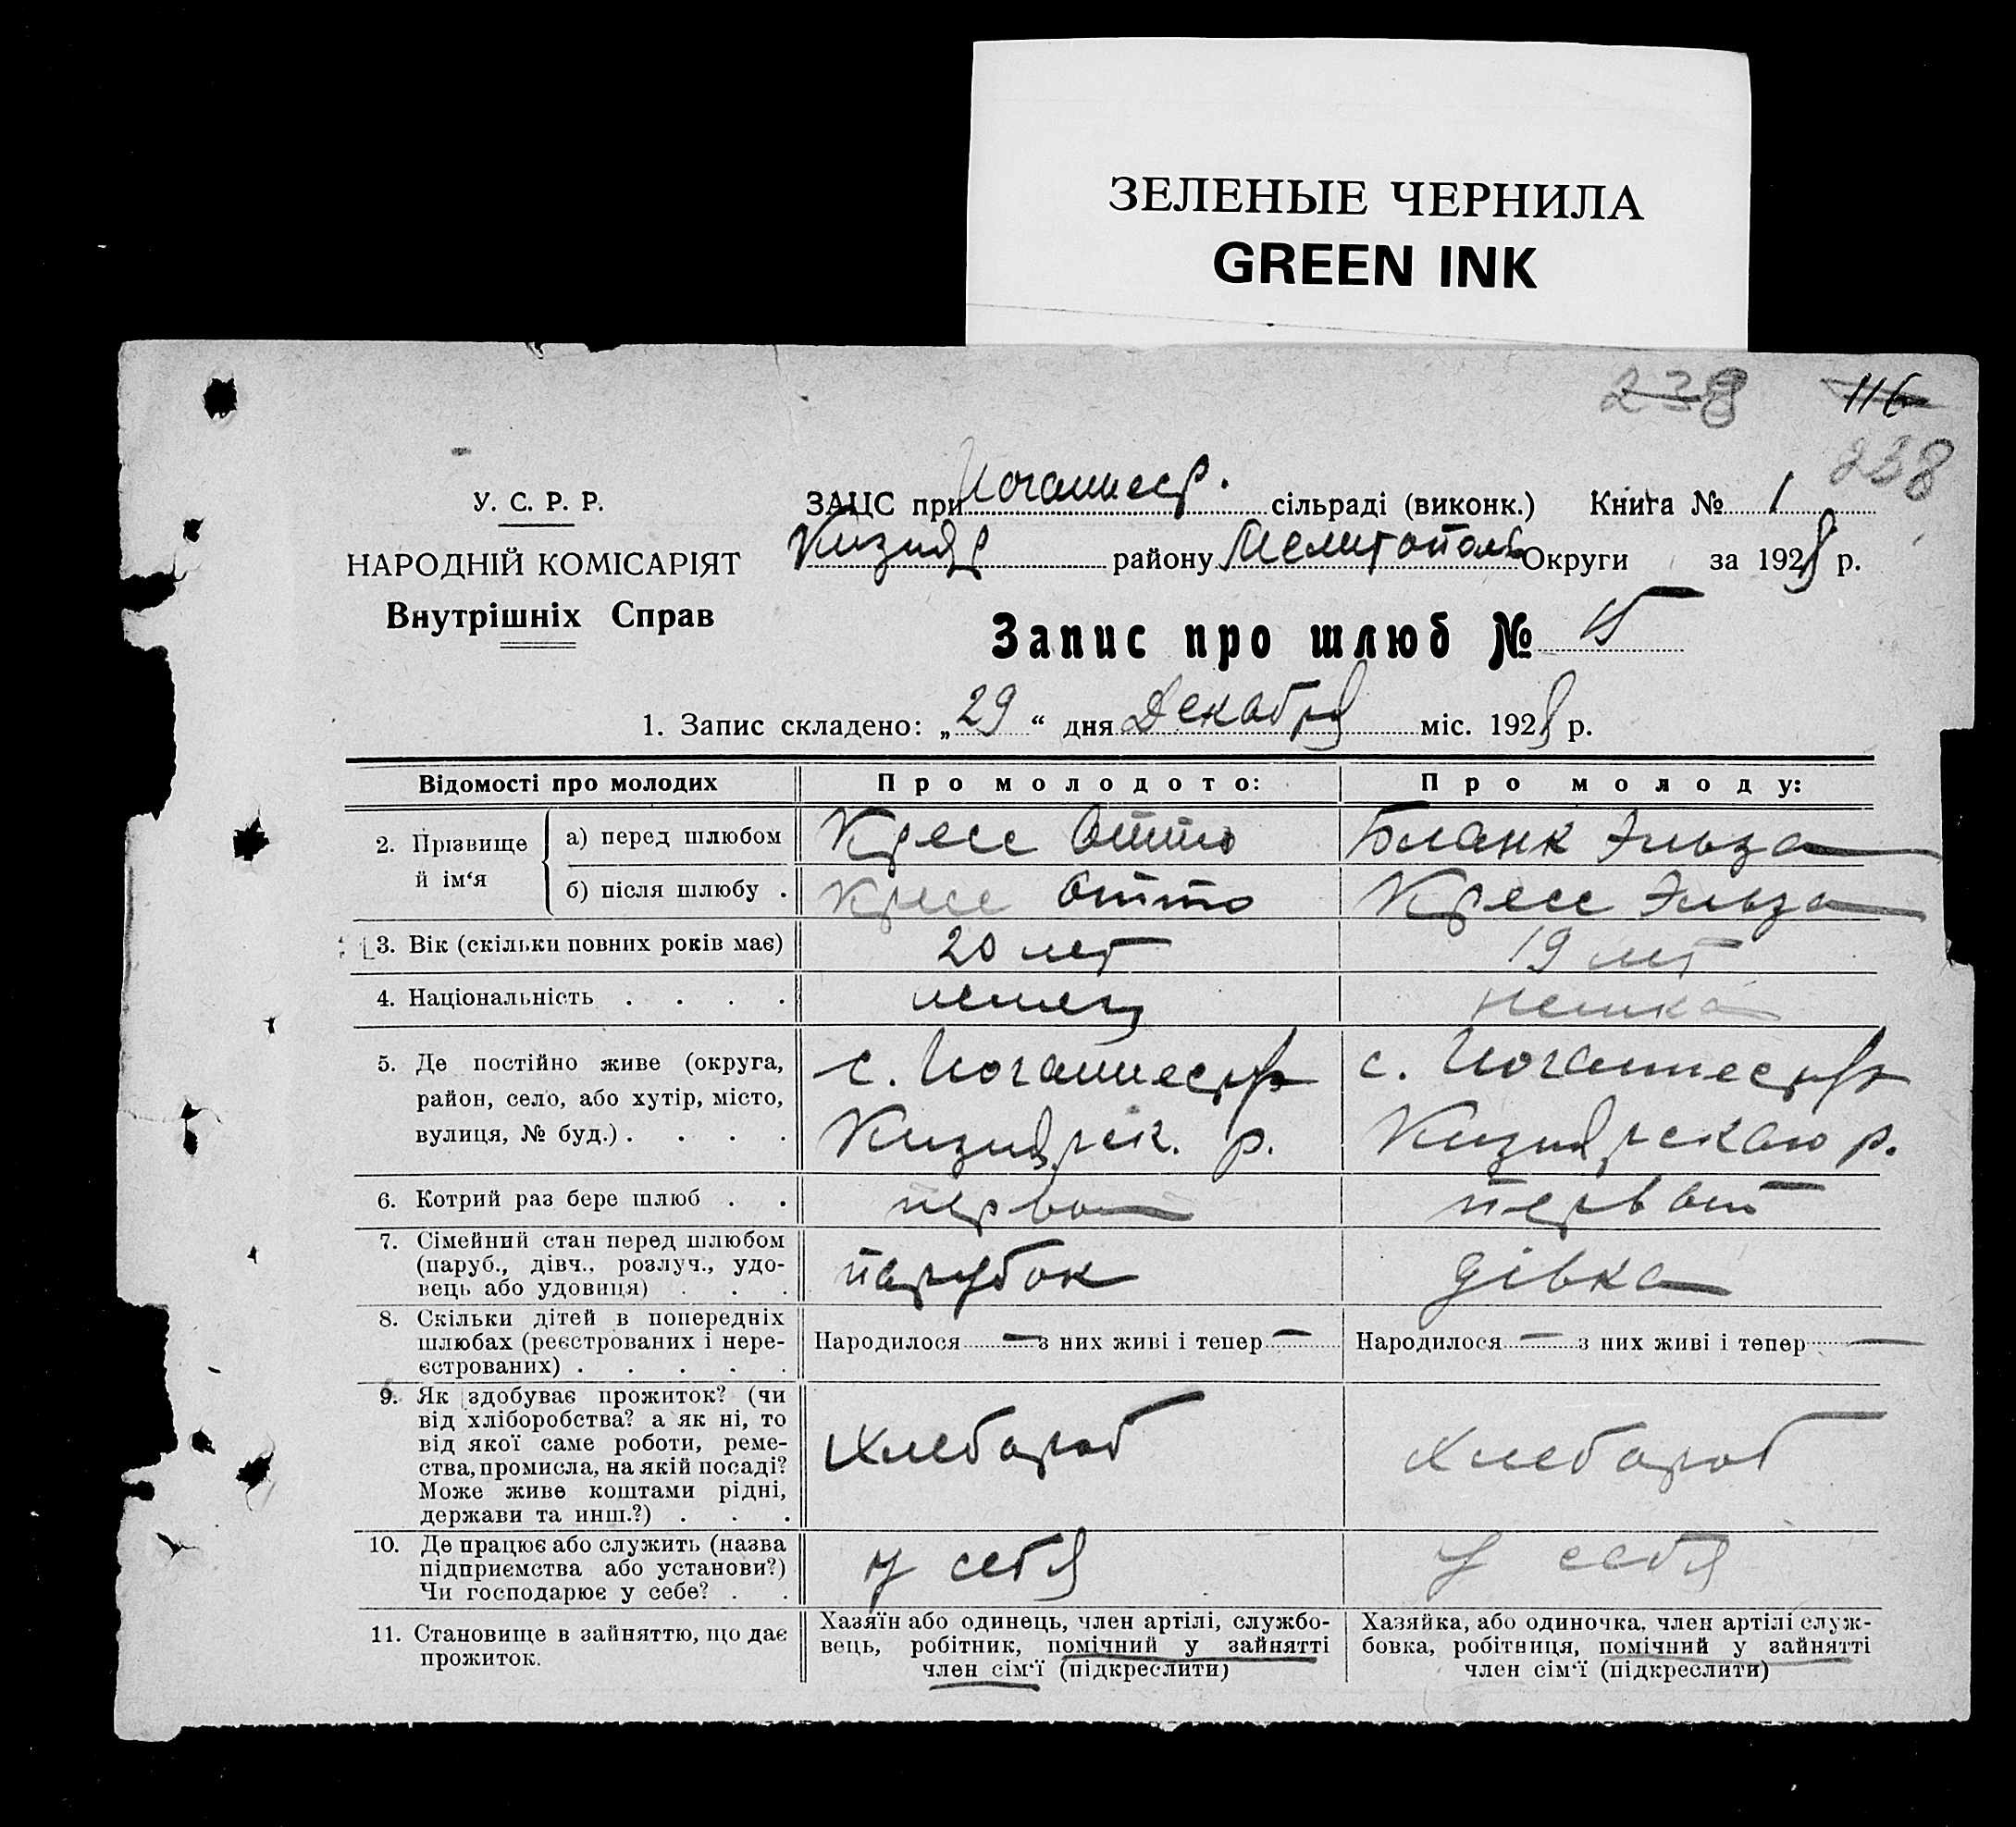 ЗЕЛЕНЫЕ ЧЕРНИЛА
GREEN INK
238 116
238
У. С. Р. Р.
НАРОДНІЙ КОМІСАРІЯТ
Внутрішніх Справ
ЗАЦС при Иоганнеср. сільраді (виконк.) Книга № 1
Кизияр району Мелитополь Округи за 1928 р.
Запис про шлюб № 15
1. Запис складено: „29“ дня Декабря міс. 1928 р.
Відомості про молодих Про молодого: Про молоду:
2. Прізвище й ім‘я а) перед шлюбом Кресс Отто Бланк Эльза
б) після шлюбу . Кресс Отто Кресс Эльза
3. Вік (скільки повних років має) 20 лет 19 лет
4. Національність . . . . немец немка
5. Де постійно живе (округа, район, село, або хутір, місто, вулиця, № буд.) . . . .
с. Иоганнесру с. Иоганнесру
Кизиярск. р. Кизиярскаго р.
6. Котрий раз бере шлюб . . первый первый
7. Сімейний стан перед шлюбом
(паруб., дівч., розлуч., удо-
вець або удовиця) . . . парубок дівка
8. Скільки дітей в попередніх
шлюбах (реєстрованих і нере-
єстрованих) . . . . .
Народилося — з них живі і тепер — Народилося — з них живі і тепер —
9. Як здобуває прожиток? (чи
від хліборобства? а як ні, то
від якої саме роботи, реме-
ства, промисла, на якій посаді?
Може живе коштами рідні,
держави та инш.?) . . .
Хлебороб Хлебороб
10. Де працює або служить (назва
підприємства або установи?)
Чи господарює у себе? . .
у себя у себя
11. Становище в зайняттю, що дає
прожиток.
Хазяїн або одинець, член артілі, службо-
вець, робітник, помічний у зайнятті
член сім‘ї (підкреслити)
Хазяйка, або одиночка, член артілі служ-
бовка, робітниця, помічний у зайнятті
член сім‘ї (підкреслити)